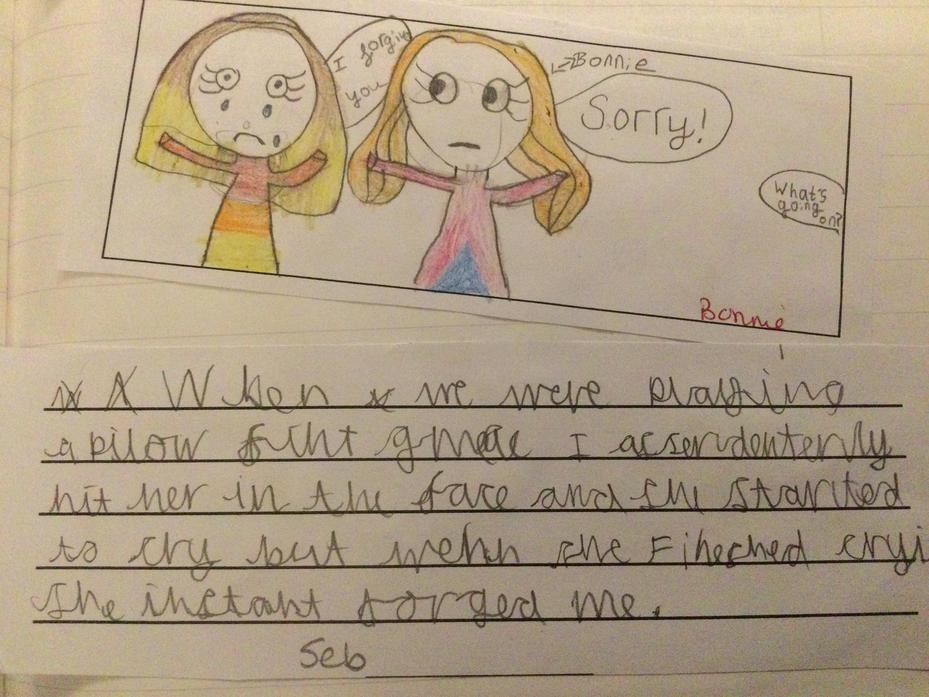 I forgive
you
Bonnie
Sorry!
What's
going
on?
Bonnie
When we were playing
a pilow gmae I acserdenterly
hit her in the face and she starited
to cry but wehn she Fiheshed cryi
she instant forged me.
Seb